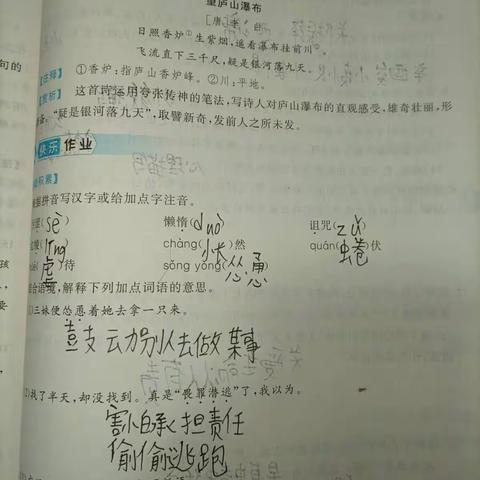 望庐山瀑布
[唐]李 白
日照香炉①生紫烟,遥看瀑布挂前川②。
飞流直下三千尺,疑是银河落九天。
【注释】 ①香炉:指庐山香炉峰。②川:平地。
【赏析】 这首诗运用夸张传神的笔法,写诗人对庐山瀑布的直观感受,雄奇壮丽,形
“疑是银河落九天”,取譬新奇,发前人之所未发。
快乐 作业
积累】
拼音写汉字或给加点字注音。
(sè) 懒惰(duò) 诅咒(zǔ)
chàng( )然 quán(蜷)伏
(虐)待 sǒng yǒng(怂恿)
语境,解释下列加点词语的意思。
三妹便怂恿着她去拿一只来。
鼓动别人去做某事
找了半天,却没找到。真是“畏罪潜逃”了,我以为。
害怕承担责任
偷偷逃跑
句的
孩
要